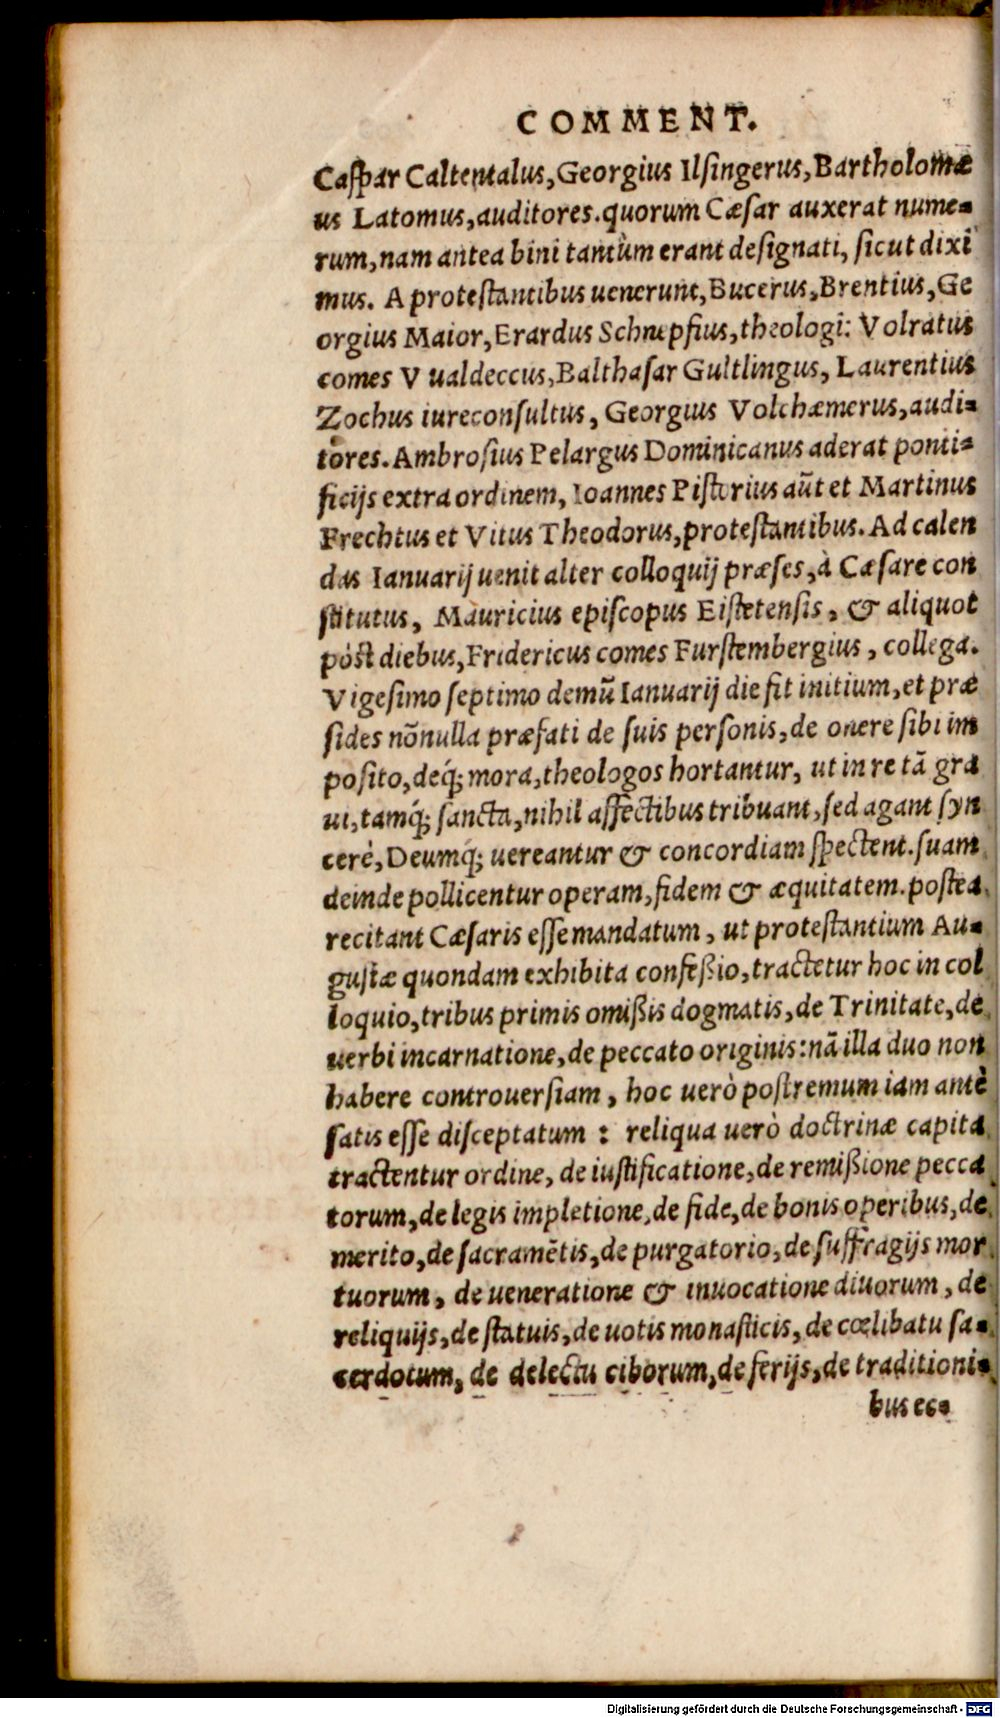 COMMENT.
Caſpar Caltentalus, Georgius Ilſingerus, Bartholomæ
us Latomus, auditores. quorum Cæſar auxerat nume-
rum, nam antea bini tantùm erant deſignati, ſicut dixi
mus. A proteſtantibus uenerunt, Bucerus, Brentius, Ge
orgius Maior, Erardus Schnepfius, theologi: Volratus
comes Vualdeccus, Balthaſar Gultlingus, Laurentius
Zochus iureconſultus, Georgius Volchæmerus, audi-
tores. Ambroſius Pelargus Dominicanus aderat ponti-
ficijs extra ordinem, Ioannes Piſtorius aũt et Martinus
Frechtus et Vitus Theodorus, proteſtantibus. Ad calen
das Ianuarij uenit alter colloquij præſes, à Cæſare con
ſtitutus, Mauricius epiſcopus Eiſtetenſis, & aliquot
pòst diebus, Fridericus comes Furſtembergius, collega.
Vigeſimo ſeptimo demũ Ianuarij die fit initium, et præ
ſides nõnulla præfati de ſuis perſonis, de onere ſibi im
poſito, deq́; mora, theologos hortantur, ut in re tã gra
ui, tamq́; ſancta, nihil affectibus tribuant, ſed agant ſyn
cerè, Deumq́; uereantur & concordiam ſpectent. ſuam
deinde pollicentur operam, fidem & æquitatem. poſtea
recitant Cæſaris eſſe mandatum, ut proteſtantium Au-
guſtæ quondam exhibita confeßio, tractetur hoc in col
loquio, tribus primis omißis dogmatis, de Trinitate, de
uerbi incarnatione, de peccato originis: nã illa duo non
habere controuerſiam, hoc uerò poſtremum iam antè
ſatis eſſe diſceptatum: reliqua uerò doctrinæ capita
tractentur ordine, de iuſtificatione, de remißione pecca
torum, de legis impletione, de fide, de bonis operibus, de
merito, de ſacramẽtis, de purgatorio, de ſuffragijs mor
tuorum, de ueneratione & inuocatione diuorum, de
reliquijs, de ſtatuis, de uotis monaſticis, de cœlibatu ſa-
cerdotum, de delectu ciborum, de ferijs, de traditioni-
bus ec-
Digitalisierung gefördert durch die Deutsche Forschungsgemeinschaft - DFG